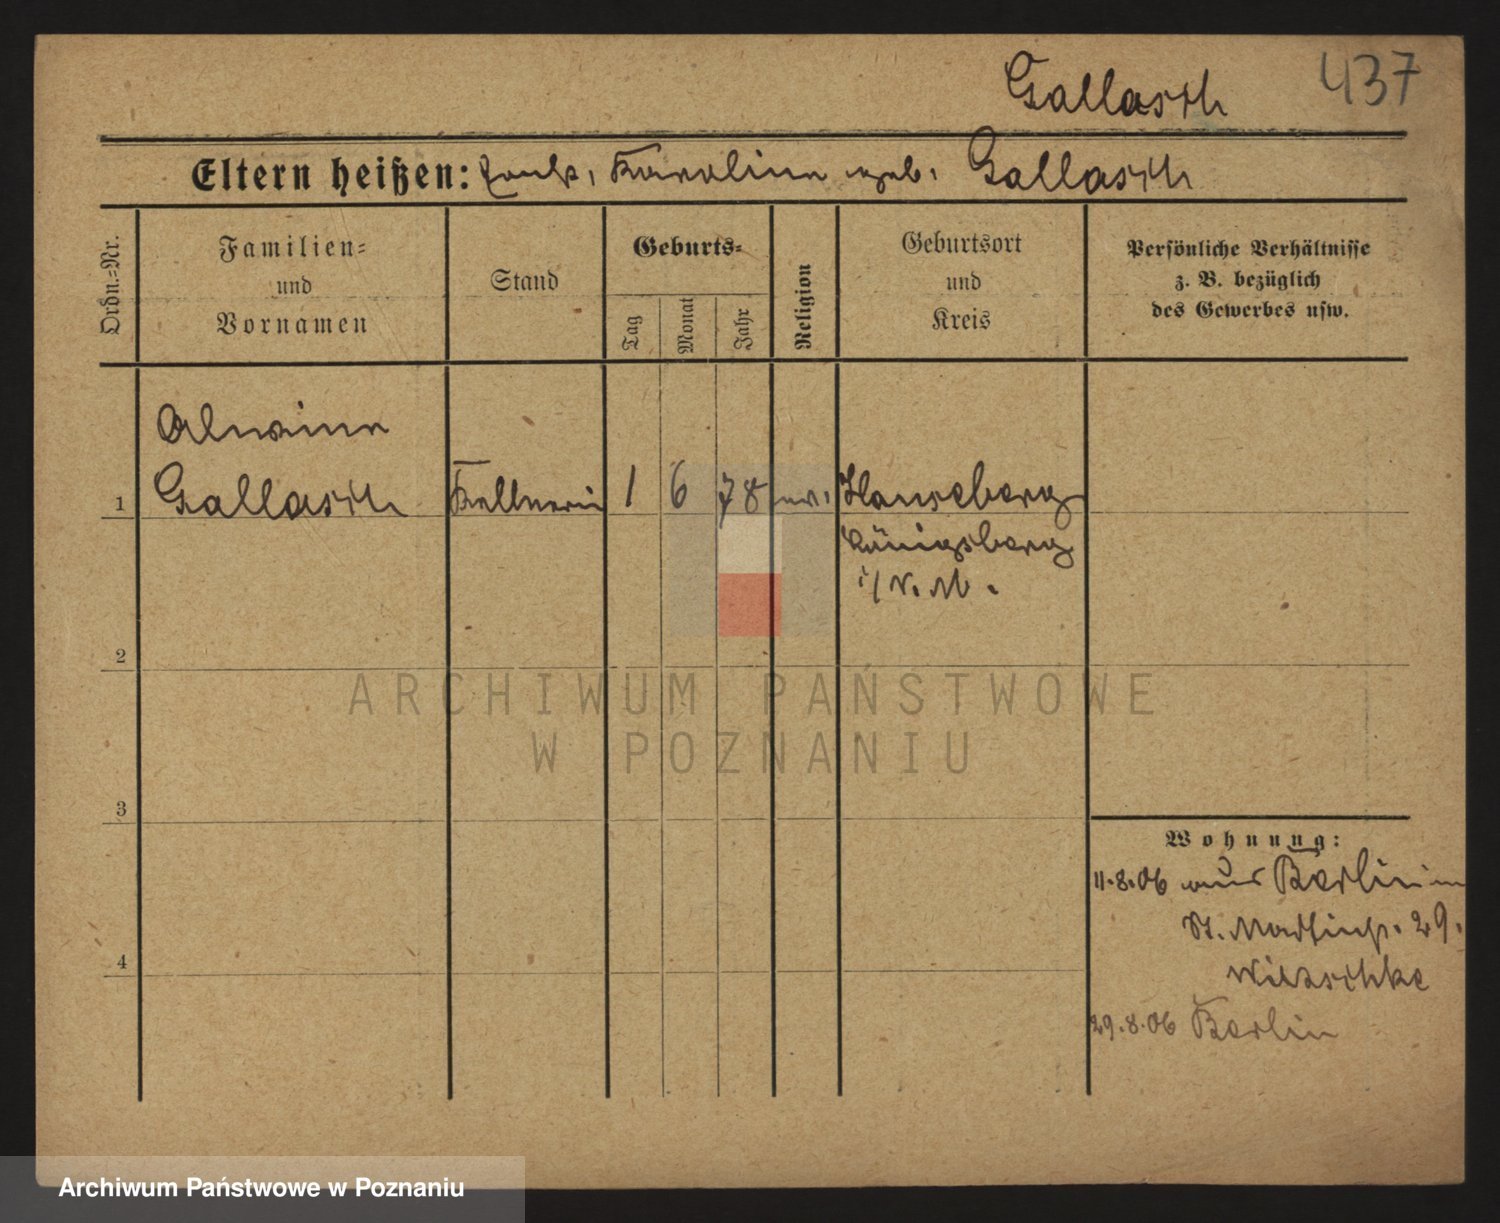 Gallasch 437
Eltern heißen: Karoline geb. Gallasch
Ordn.=Nr.
Familien=
und
Vornamen
Stand
Geburts=
Tag
Monat
Jahr
Religion
Geburtsort
und
Kreis
Persönliche Verhältnisse
z. B. bezüglich
des Gewerbes usw.
Alwine
1 Gallasch Kellnerin 1 6 78 ev. Hanseberg
Königsberg
i/N.M.
2
3
4
Wohnung:
11.8.06 aus Berlin in
St. Martinstr. 29.
Witzschke
29.8.06 Berlin
ARCHIWUM PAŃSTWOWE
W POZNANIU
Archiwum Państwowe w Poznaniu